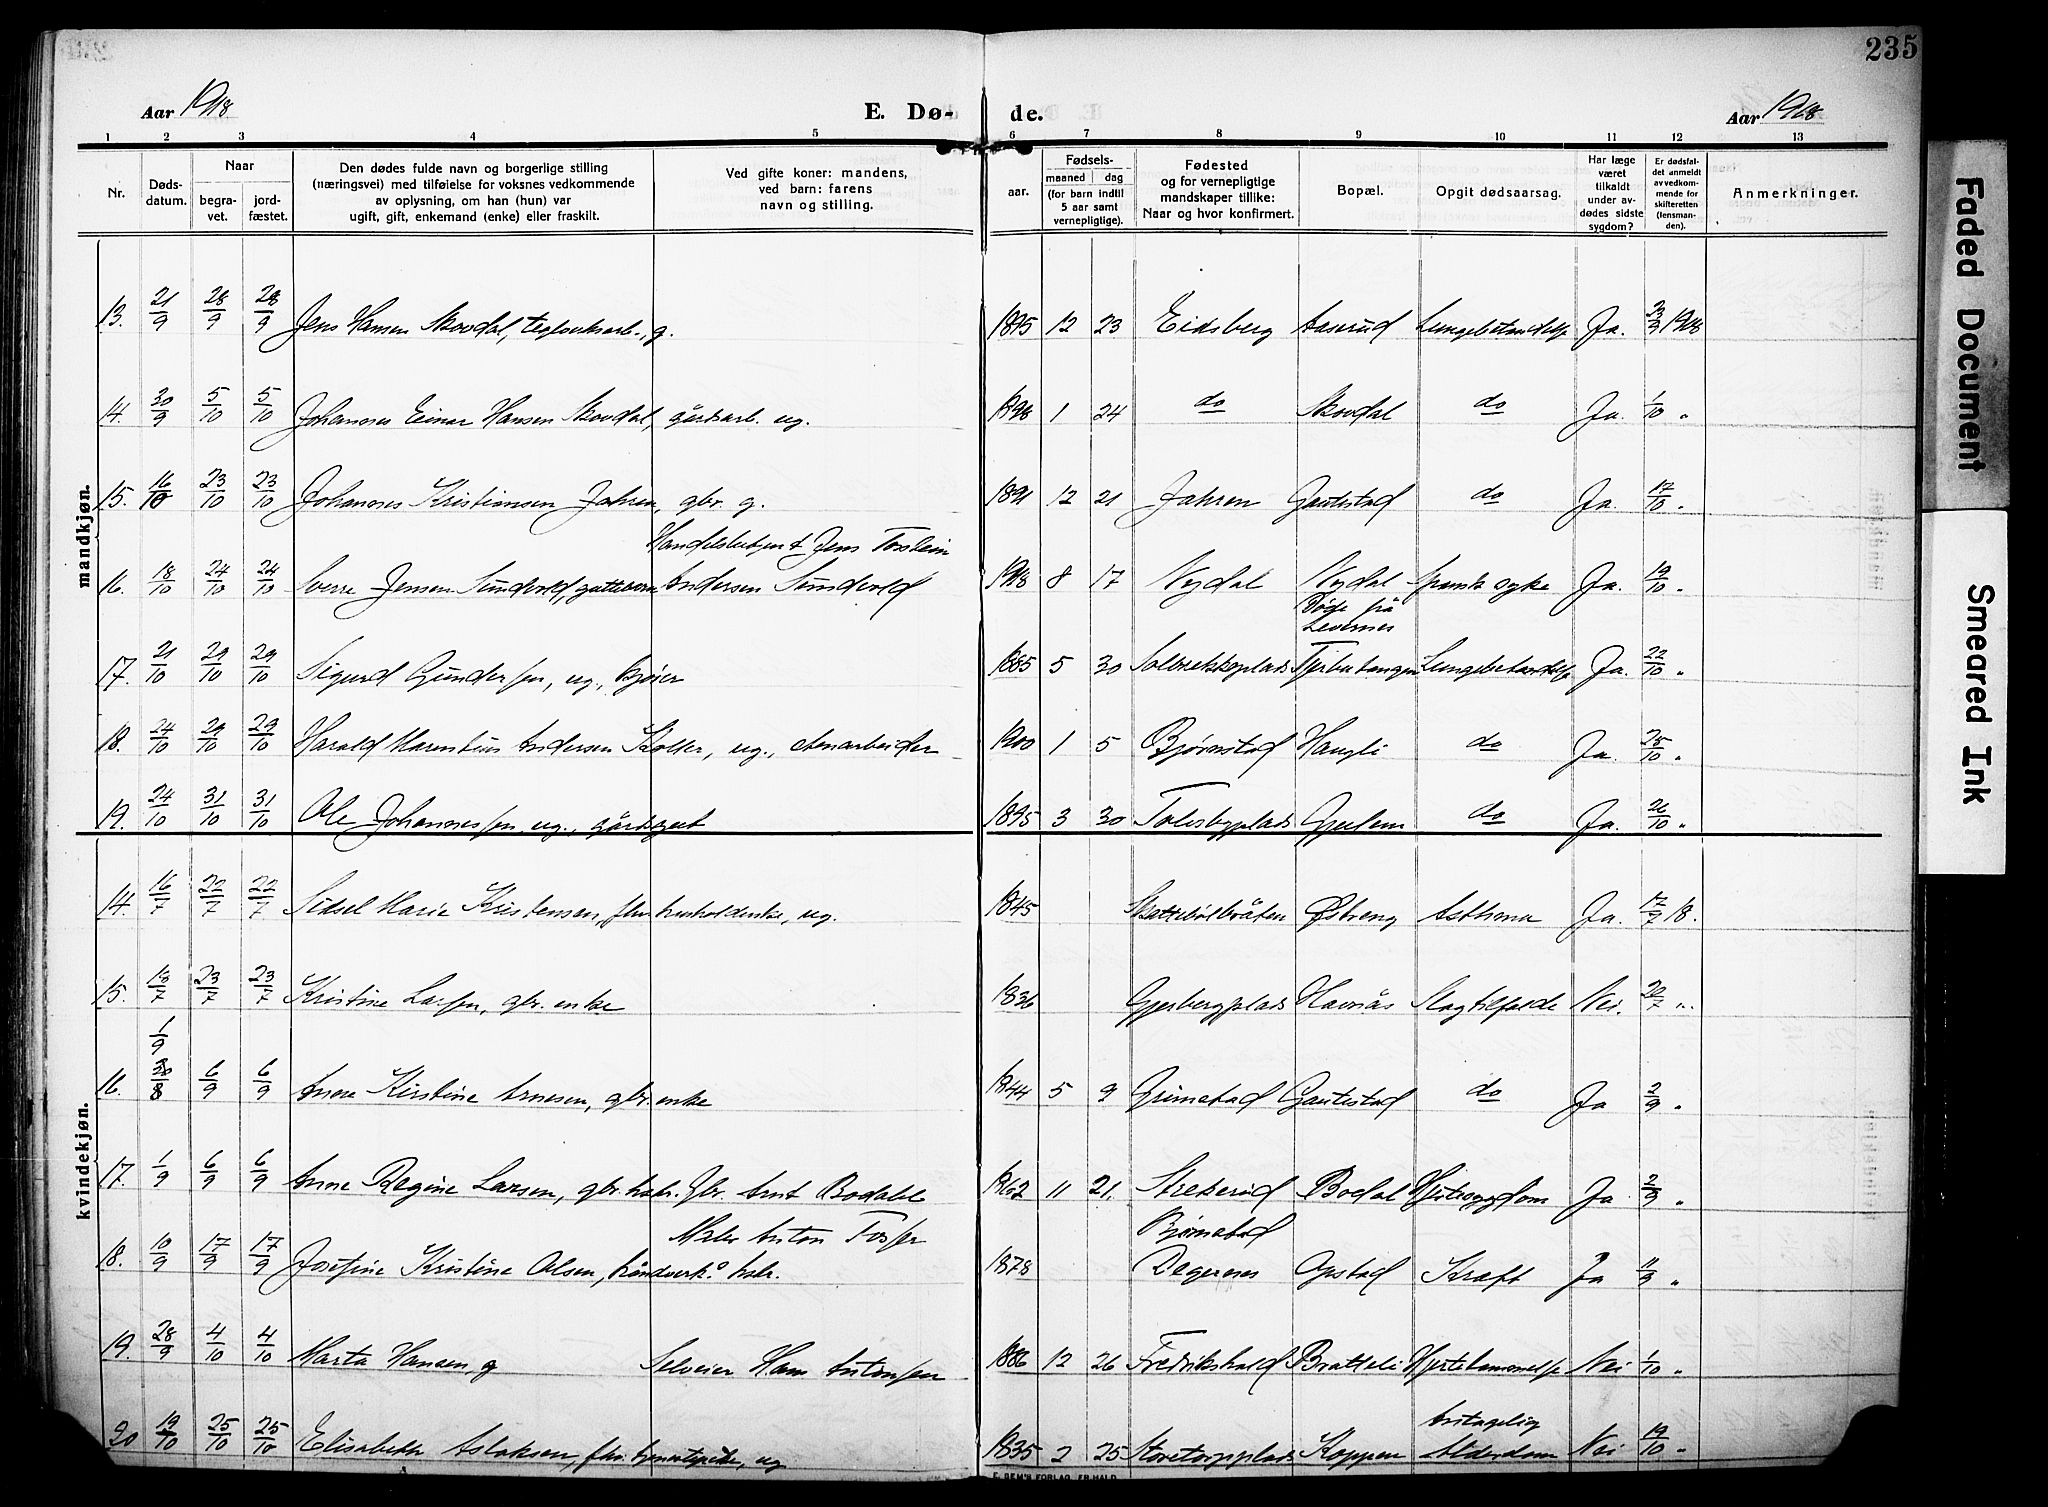 235
Aar 1918
E. Dø-
de.
Aar 1918
1 2 3 4 5 6 7 8 9 10 11 12 13
Nr.
Døds-
datum.
Naar
begra-
vet.
jord-
fæstet.
Den dødes fulde navn og borgerlige stilling
(næringsvei) med tilføielse for voksnes vedkommende
av oplysning, om han (hun) var
ugift, gift, enkemand (enke) eller fraskilt.
Ved gifte koner: mandens,
ved barn: farens
navn og stilling.
aar.
Fødsels-
maaned dag
(for barn indtil
5 aar samt
vernepligtige).
Fødested
og for vernepligtige
mandskaper tillike:
Naar og hvor konfirmert.
Bopæl.
Opgit dødsaarsag.
Har læge
været
tilkaldt
under av-
dødes sidste
sygdom?
Er dødsfal-
det anmeldt
av vedkom-
mende for
skifteretten
(lensman-
den).
Anmerkninger.
mandkjøn.
13. 21/9 28/9 28/9 Jens Hansen Skovdal, teglverksarb., g. 1895 12 23 Eidsberg Aaserud Lungebetændelse Ja. 23/9 1918
14. 30/9 5/10 5/10 Johannes Einar Hansen Skovdal, gårdsarb. ug. 1898 1 24 do Skovdal do Ja. 1/10 "
15. 16/10 23/10 23/10 Johannes Kristiansen Jahren, gbr. g. 1891 12 21 Jahren Gautestad do Ja. 17/10 "
Jens Torstein
16. 18/10 24/10 24/10 Sverre Jensen Sundvold, guttebarn Andersen Sundvold 1918 8 17 Nydal Nydal spansk syke Ja. 19/10 "
17. 21/10 29/10 29/10 Sigurd Gundersen, ug., 1885 5 30 Lungebetændelse Ja. 22/10 "
18. 24/10 29/10 29/10 Harald Marentius Andersen ug., 1900 1 5 Bjørnstad Haugli do Ja. 25/10 "
19. 24/10 31/10 31/10 Ole Johannessen ug., gårdsgut 1895 3 30 do Ja. 26/10 "
kvindekjøn.
14. 16/7 22/7 22/7 Sidsel Marie Kristensen, ug. 1845 Østreng Asthma Ja. 17/7 18.
15. 18/7 23/7 23/7 Kristine Larsen, gbr. enke 1836 Gjerbergplads Havnås Slagtilfælde Nei. 20/7 "
1/9
16. 30/8 6/9 6/9 Anne Kirstine Arnesen, gbr. enke 1844 5 9 Grimstad Gautestad do Ja 2/9 "
17. 1/9 6/9 6/9 Anne Regine Larsen, gbr. kone. Gbr. Arnt Bodahl 1862 11 21. Bodal Hjertesygdom Ja 2/9 "
Maler Anton
Bjørnstad
18. 10/9 17/9 17/9 Josefine Kristine Olsen, håndverk. kone. 1878 Degernes Opstad Kræft Ja 11/9 "
19. 28/9 4/10 4/10 Marta Hansen, g Selveier Hans Antonsen 1886 12 26 Fredrikshald Bratteli Hjertelammelse Nei 1/10 "
Antagelig
20 19/10 25/10 25/10 Elisabeth Aslaksen, ug 1835 2 25 Storetorpplads Koppen Alderdom Nei 19/10 "
E. SEM'S FORLAG, FR.HALD
Faded Document
Smeared Ink